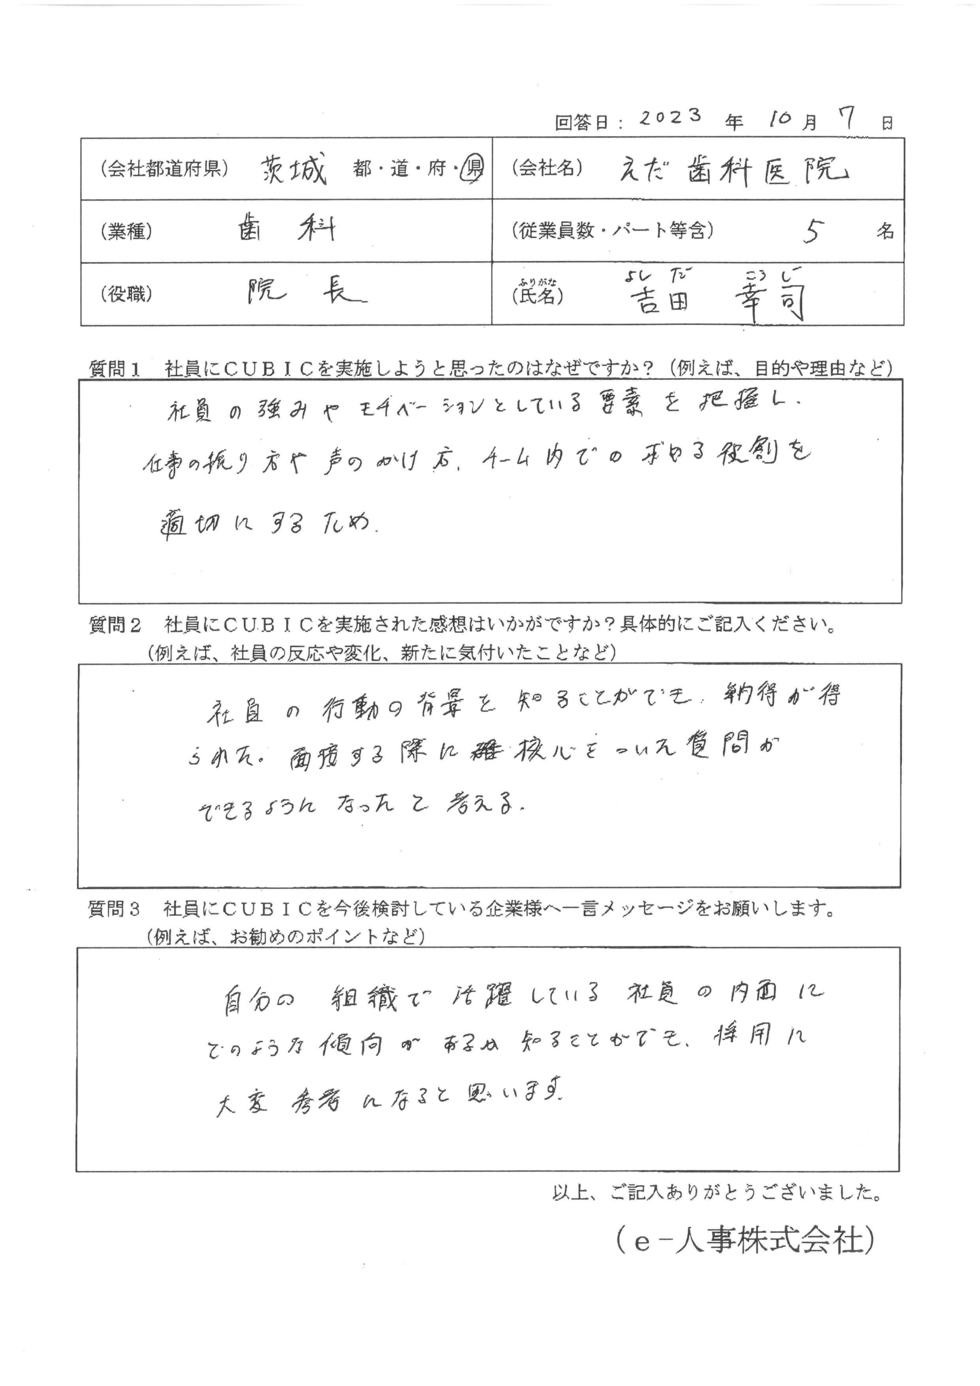 回答日：2023 年 10 月 7 日
(会社都道府県) 茨城 都・道・府・県
(会社名) えだ歯科医院
(業種) 歯科
(従業員数・パート等含) 5 名
(役職) 院長
ふりがな よしだ こうじ
(氏名) 吉田 幸司
質問１ 社員にＣＵＢＩＣを実施しようと思ったのはなぜですか？（例えば、目的や理由など）
社員の強みやモチベーションとしている要素を把握し、
仕事の振り方や声のかけ方、チーム内での求める役割を
適切にするため.
質問２ 社員にＣＵＢＩＣを実施された感想はいかがですか？具体的にご記入ください。
（例えば、社員の反応や変化、新たに気付いたことなど）
社員の行動の背景を知ることができ、納得が得
られた。面接する際に核心をついた質問が
できるようになったと考える.
質問３ 社員にＣＵＢＩＣを今後検討している企業様へ一言メッセージをお願いします。
（例えば、お勧めのポイントなど）
自分の組織で活躍している社員の内面に
どのような傾向が 知ることができ、採用に
大変参考になると思います.
以上、ご記入ありがとうございました。
（ｅ-人事株式会社）